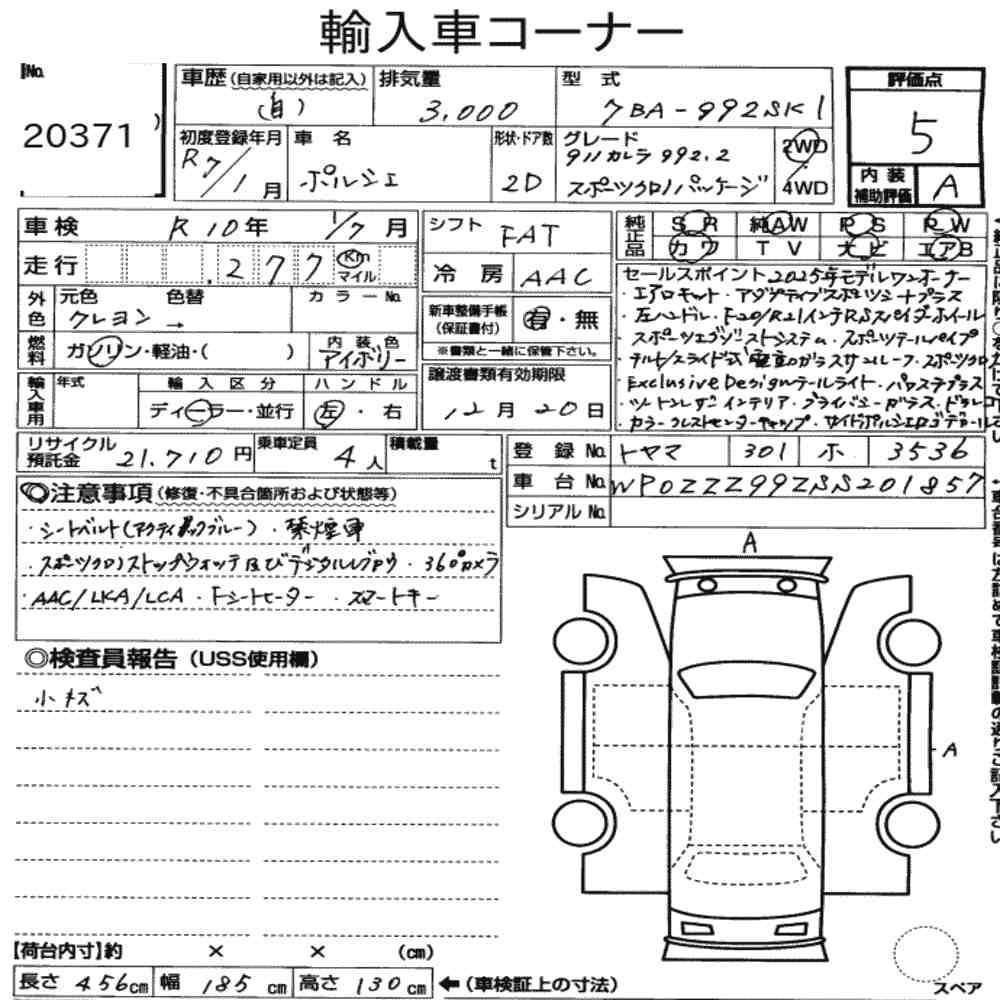 輸入車コーナー
No.
20371
車歴(自家用以外は記入)
(自)
排気量
3,000
型 式
7BA-992SK1
評価点
5
内装
補助評価
A
初度登録年月
R7/1月
車 名
ポルシェ
形状・ドア数
2D
グレード
911カレラ992.2
スポーツクロノパッケージ
2WD
4WD
車検 R10年 1/7月
走行 .277 Km
マイル
シフト
FAT
冷 房
AAC
純正品
S R 純AW P S P W
カ ワ T V ナ ビ エアB
セールスポイント2025年モデルワンオーナー
・エアロキット・アダプティブスポーツシートプラス
・左ハンドル・F20/R21インチRSスパイダーホイール
スポーツエグゾーストシステム・スポーツテールパイプ
チルト/スライド式電動ガラスサンルーフ・スポーツクロノ
Exclusive Designテールライト・パワステプラス
・ツートンレザーインテリア・プライバシーガラス・ドラレコ
・カラークレストセンターキャップ・サイドポルシェロゴデカール
外色
元色 色替 カラーNo.
クレヨン →
燃料
ガソリン・軽油・( )
内装色
アイボリー
輸入車用
年式
輸入区分
ディーラー・並行
ハンドル
左・右
新車整備手帳
(保証書付)
有・無
※書類と一緒に保管下さい。
譲渡書類有効期限
12月20日
リサイクル
預託金
21,710円
乗車定員
4人
積載量
t
登 録 No. トヤマ 301 ホ 3536
車 台 No. WP0ZZZ99ZSS201857
シリアル No.
◎注意事項(修復・不具合箇所および状態等)
・シートベルト(アクティブブルー)・禁煙車
・スポーツクロノストップウォッチ及びデジタルレブカウ・360°カメラ
・AAC/LKA/LCA・Fシートヒーター・スマートキー
◎検査員報告(USS使用欄)
小キズ
A
A
【荷台内寸】約 × × (cm)
長さ 456cm 幅 185cm 高さ 130cm ←(車検証上の寸法)
スペア